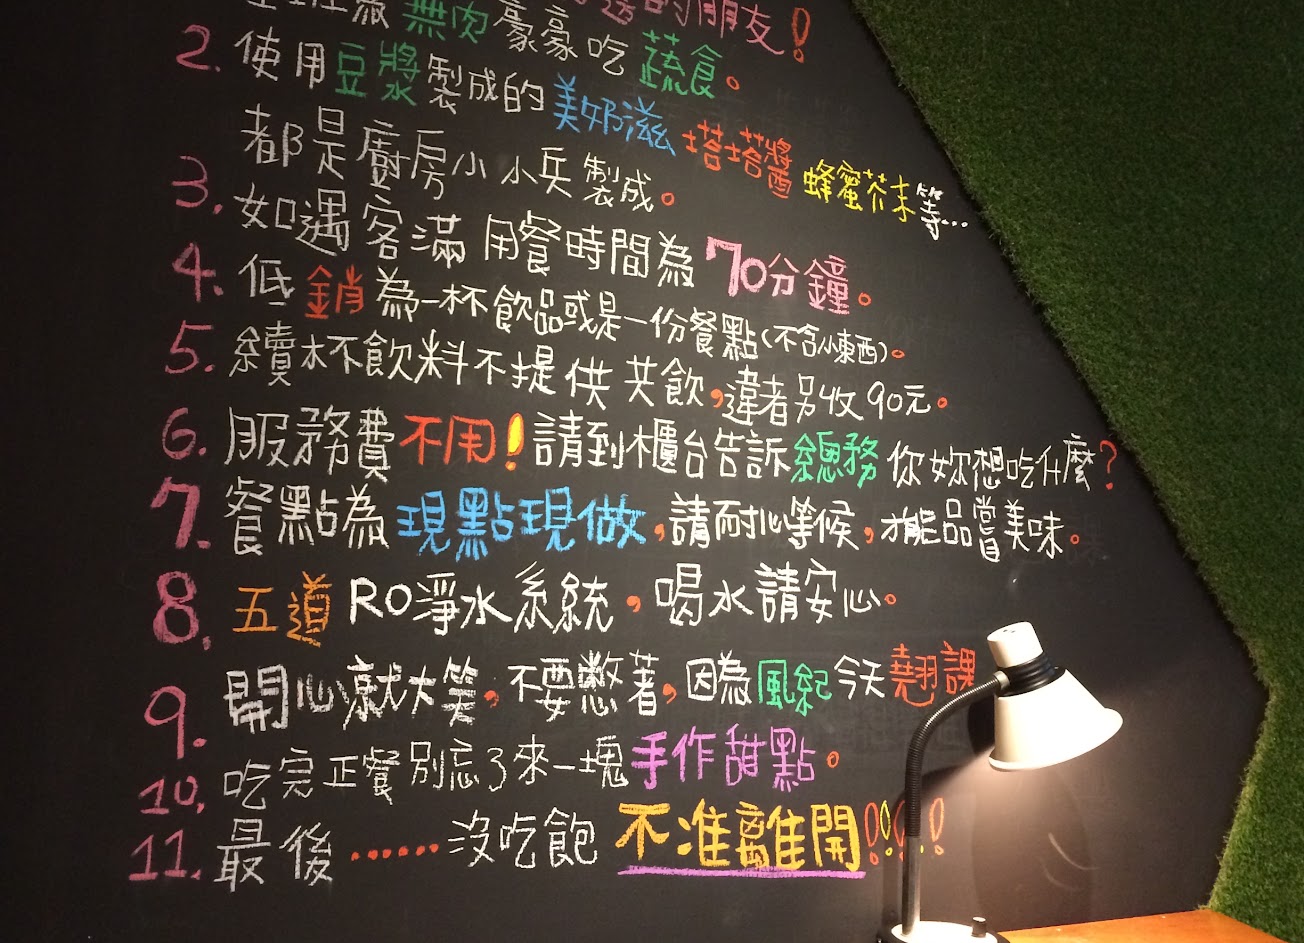 的朋友!
無肉 豪豪吃 蔬食。
2. 使用豆漿製成的美奶滋 塔塔醬 蜂蜜芥末等...
都是廚房小小兵製成。
3. 如遇客滿 用餐時間為 70分鐘。
4. 低銷為一杯飲品或是一份餐點(不含小東西)。
5. 續杯飲料不提供共飲,違者另收90元。
6. 服務費不用!請到櫃台告訴總務 你妳想吃什麼?
7. 餐點為現點現做,請耐心等候,才能品嘗美味。
8. 五道RO淨水系統,喝水請安心。
9. 開心就大笑,不要憋著,因為風紀今天翹課
10. 吃完正餐別忘了來一塊手作甜點。
11. 最後.......沒吃飽 不准離開!!!!